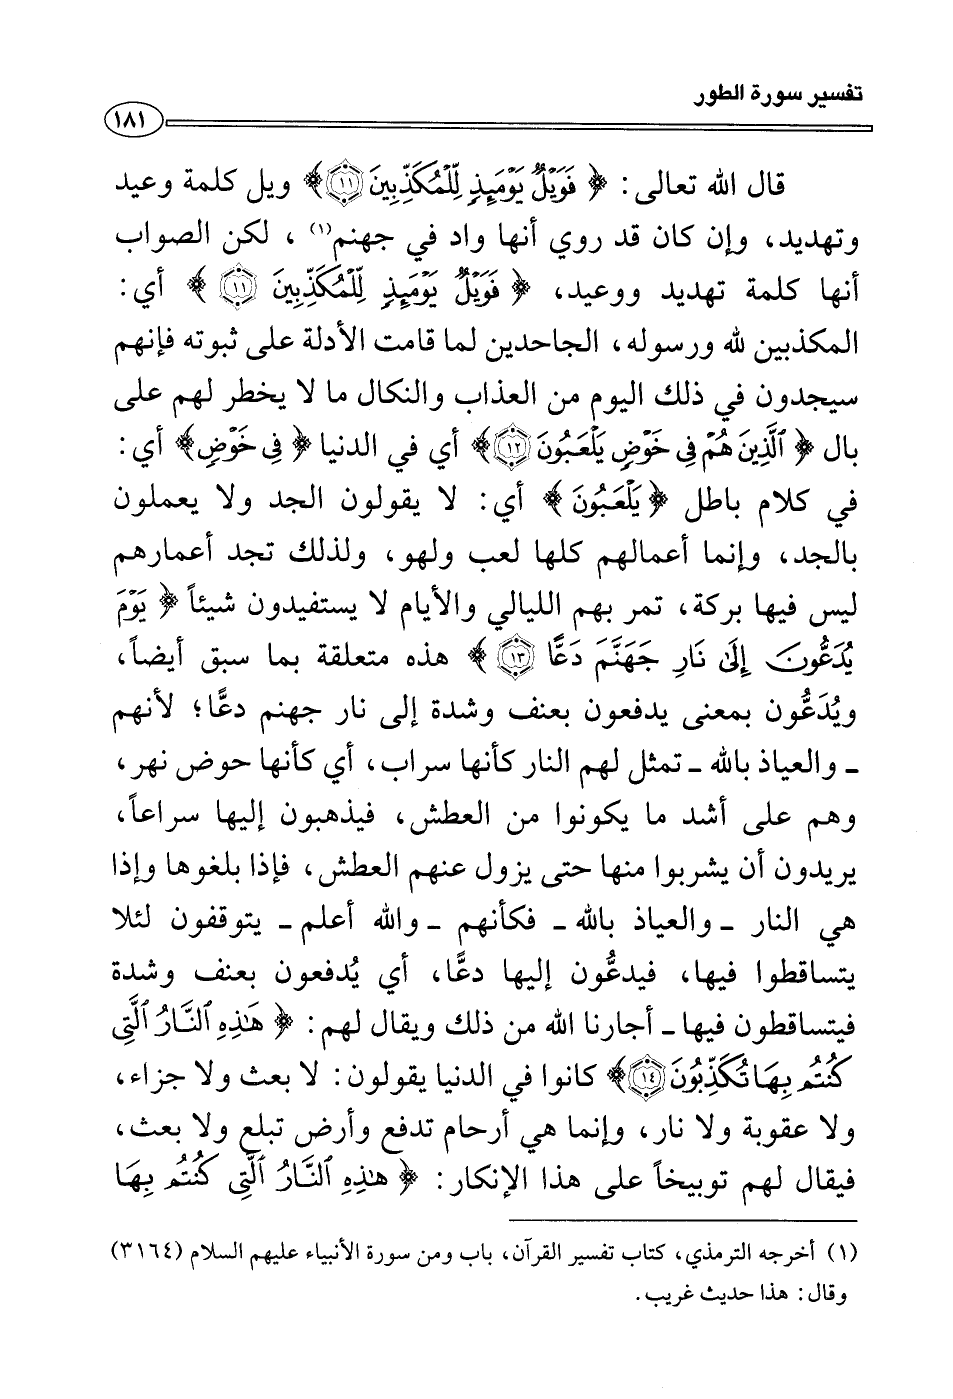 تفسير سورة الطور
١٨١
قال الله تعالى: ﴿ فَوَيْلٌ يَوْمَئِذٍ لِّلْمُكَذِّبِينَ ١١ ﴾ ويل كلمة وعيد
وتهديد، وإن كان قد روي أنها واد في جهنم(١)، لكن الصواب
أنها كلمة تهديد ووعيد، ﴿ فَوَيْلٌ يَوْمَئِذٍ لِّلْمُكَذِّبِينَ ١١ ﴾ أي:
المكذبين لله ورسوله، الجاحدين لما قامت الأدلة على ثبوته فإنهم
سيجدون في ذلك اليوم من العذاب والنكال ما لا يخطر لهم على
بال ﴿ ٱلَّذِينَ هُمْ فِي خَوْضٍ يَلْعَبُونَ ١٢ ﴾ أي في الدنيا ﴿ فِي خَوْضٍ ﴾ أي:
في كلام باطل ﴿ يَلْعَبُونَ ﴾ أي: لا يقولون الجد ولا يعملون
بالجد، وإنما أعمالهم كلها لعب ولهو، ولذلك تجد أعمارهم
ليس فيها بركة، تمر بهم الليالي والأيام لا يستفيدون شيئاً ﴿ يَوْمَ
يُدَعُّونَ إِلَىٰ نَارِ جَهَنَّمَ دَعًّا ١٣ ﴾ هذه متعلقة بما سبق أيضاً،
ويُدَعُّون بمعنى يدفعون بعنف وشدة إلى نار جهنم دعًّا؛ لأنهم
ـ والعياذ بالله ـ تمثل لهم النار كأنها سراب، أي كأنها حوض نهر،
وهم على أشد ما يكونوا من العطش، فيذهبون إليها سراعاً،
يريدون أن يشربوا منها حتى يزول عنهم العطش، فإذا بلغوها وإذا
هي النار ـ والعياذ بالله ـ فكأنهم ـ والله أعلم ـ يتوقفون لئلا
يتساقطوا فيها، فيدعُّون إليها دعًّا، أي يُدفعون بعنف وشدة
فيتساقطون فيها ـ أجارنا الله من ذلك ويقال لهم: ﴿ هَٰذِهِ ٱلنَّارُ ٱلَّتِي
كُنتُم بِهَا تُكَذِّبُونَ ١٤ ﴾ كانوا في الدنيا يقولون: لا بعث ولا جزاء،
ولا عقوبة ولا نار، وإنما هي أرحام تدفع وأرض تبلع ولا بعث،
فيقال لهم توبيخاً على هذا الإنكار: ﴿ هَٰذِهِ ٱلنَّارُ ٱلَّتِي كُنتُم بِهَا
(١) أخرجه الترمذي، كتاب تفسير القرآن، باب ومن سورة الأنبياء عليهم السلام (٣١٦٤)
وقال: هذا حديث غريب.